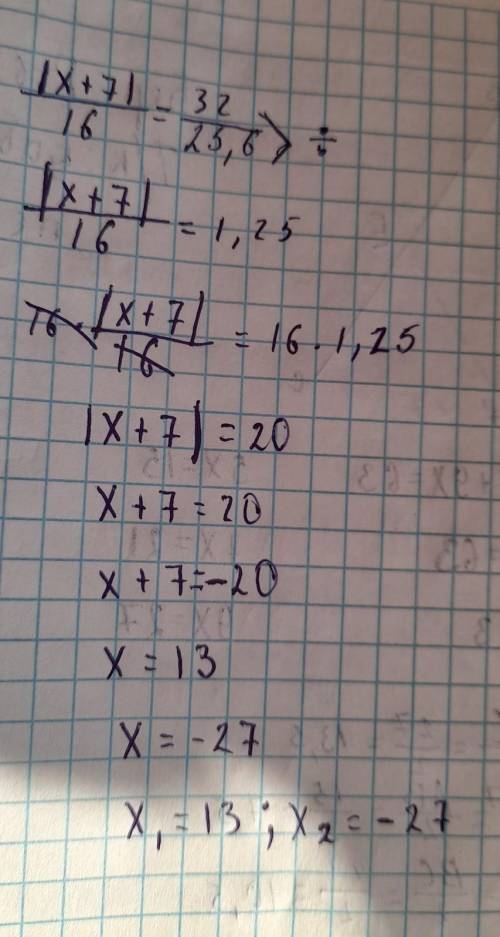 |x+7|/16 = 32/25,6 > ÷
|x+7|/16 = 1,25
16 · |x+7|/16 = 16 · 1,25
|x+7| = 20
x+7=20
x+7=-20
x=13
x=-27
x₁=13; x₂=-27